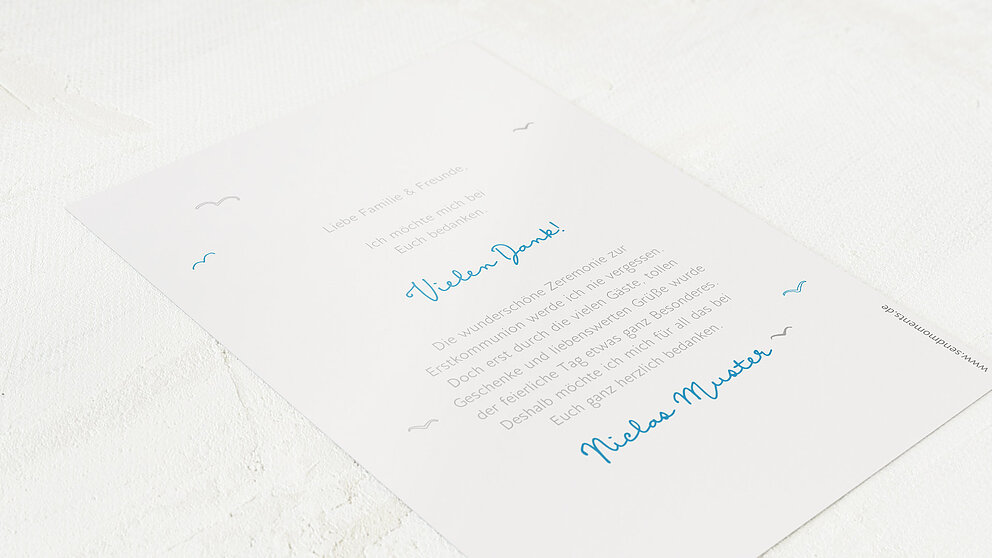 Liebe Familie & Freunde,
Ich möchte mich bei
Euch bedanken
Vielen Dank!
Die wunderschöne Zeremonie zur
Erstkommunion werde ich nie vergessen.
Doch erst durch die vielen Gäste, tollen
Geschenke und liebenswerten Grüße wurde
der feierliche Tag etwas ganz Besonderes.
Deshalb möchte ich mich für all das bei
Euch ganz herzlich bedanken.
Niclas Muster
www.sendmoments.de